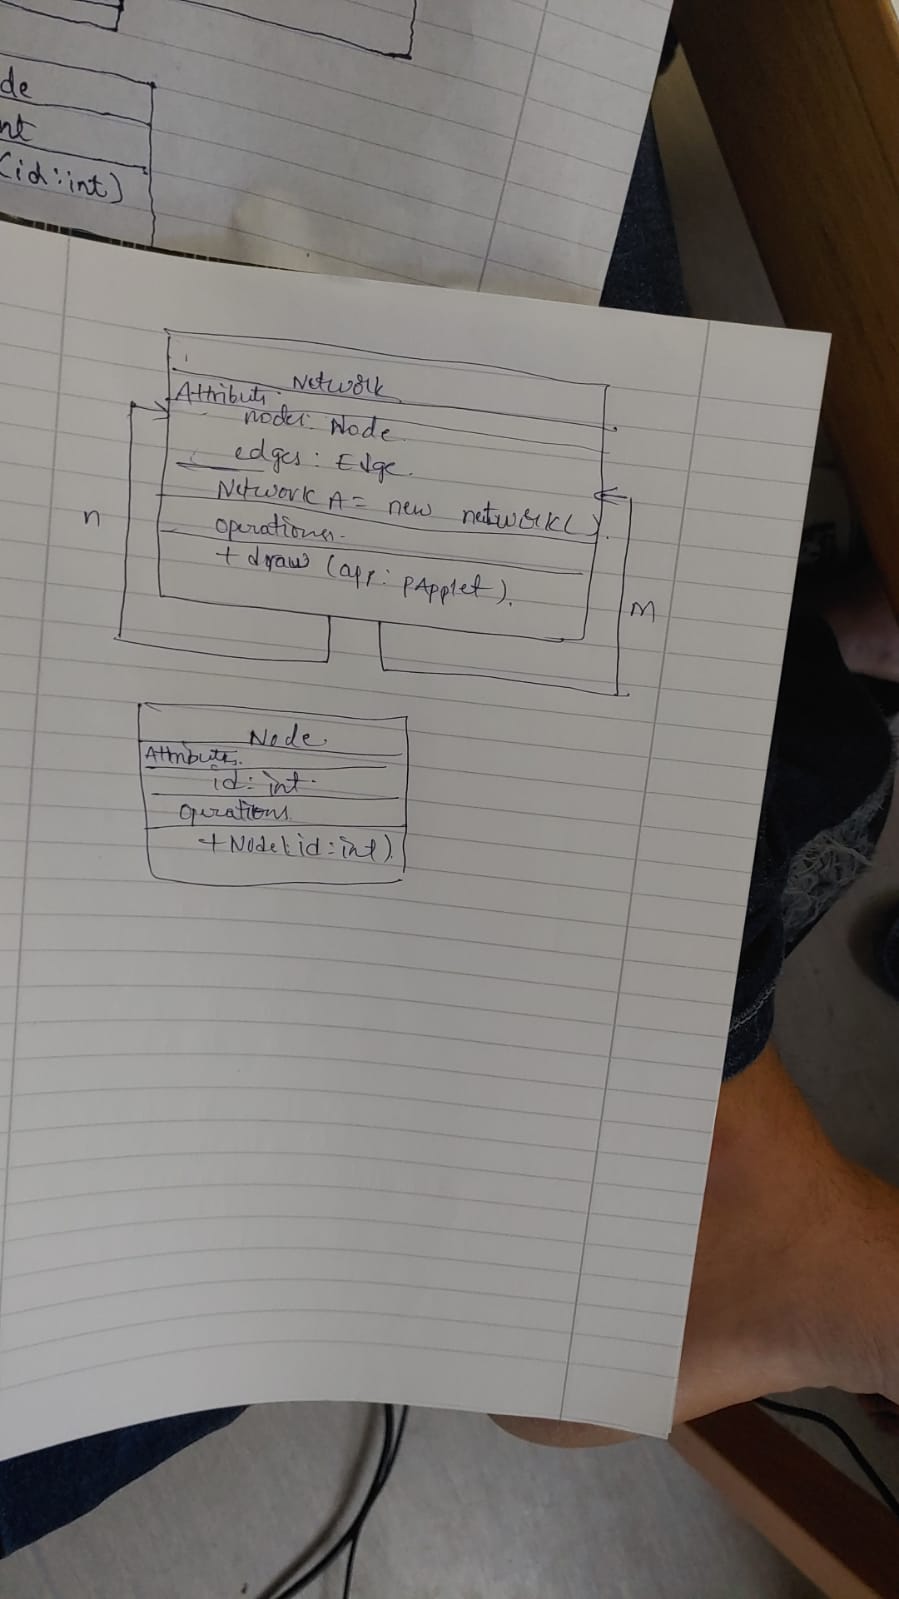 de
nt
(id:int)
Network
Attribute.
nodes: Node
edges: Edge.
Network A = new network()
operationes.
+ draw (app: pApplet).
n
M
Node
Attributes.
id: int.
operations
+Node(id:int).